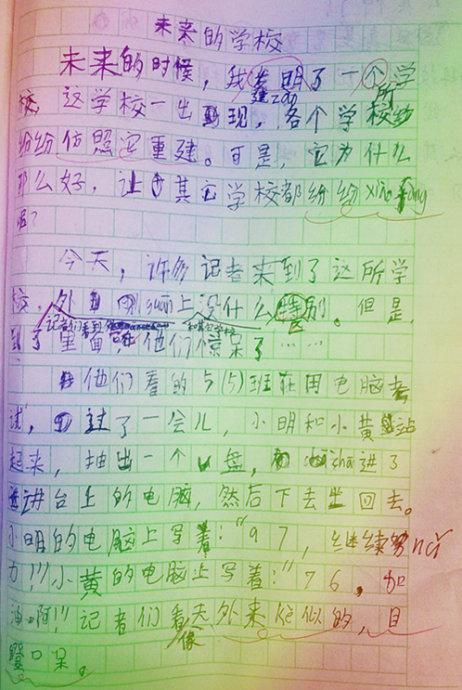 未来的学校
未来的时候，我发明了一个学
建zao 所
校，这学校一出现，各个学校纷
纷纷仿照它重建。可是，它为什么
那么好，让其它学校都纷纷xiào fǎng
呢？
今天，许多记者来到了这所学
校，外上没什么特别。但是，
记者们看到 和其它学校 区
到了里面，他们惊呆了……
他们看的5(5)班在用电脑考
试，过了一会儿，小明和小黄站
起来，抽出一个u盘，chā进了
讲台上的电脑，然后下去坐回去。
小明的电脑上写着：“97，继续努nǔ
力！”小黄的电脑上写着：“76，加
油啊！”记者们看天外来kè似的，目
像
瞪口呆。